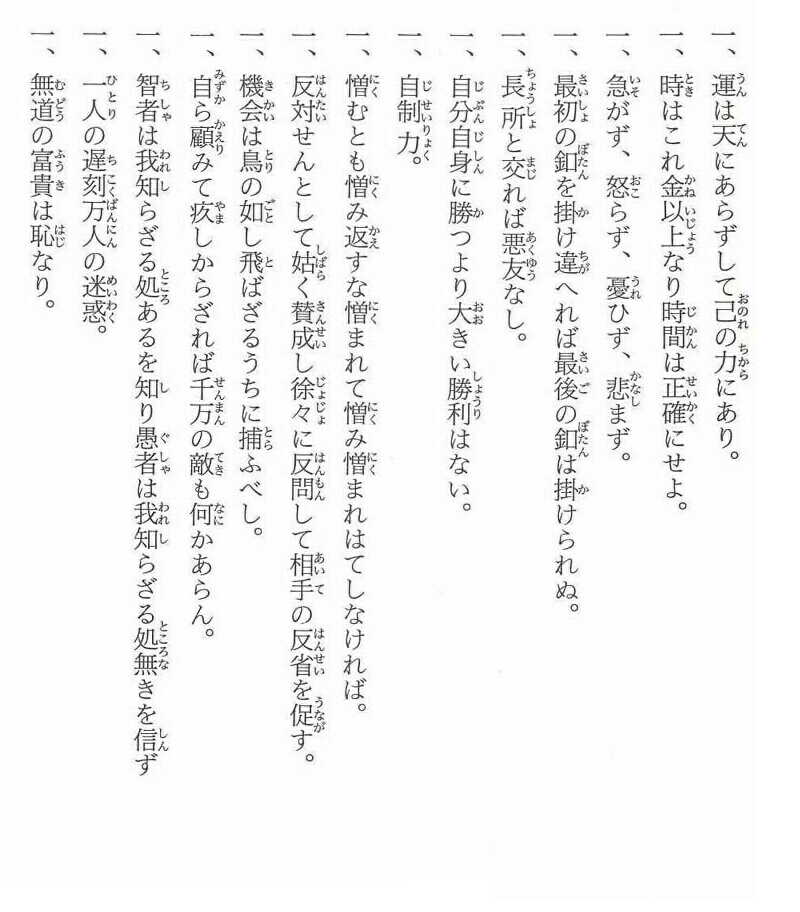 一、運は天にあらずして己の力にあり。
一、時はこれ金以上なり時間は正確にせよ。
一、急がず、怒らず、憂ひず、悲まず。
一、最初の釦を掛け違へれば最後の釦は掛けられぬ。
一、長所と交れば悪友なし。
一、自分自身に勝つより大きい勝利はない。
一、自制力。
一、憎むとも憎み返すな憎まれて憎み憎まれはてしなければ。
一、反対せんとして姑く賛成し徐々に反問して相手の反省を促す。
一、機会は鳥の如し飛ばざるうちに捕ふべし。
一、自ら顧みて疚しからざれば千万の敵も何かあらん。
一、智者は我知らざる処あるを知り愚者は我知らざる処無きを信ず
一、一人の遅刻万人の迷惑。
一、無道の富貴は恥なり。